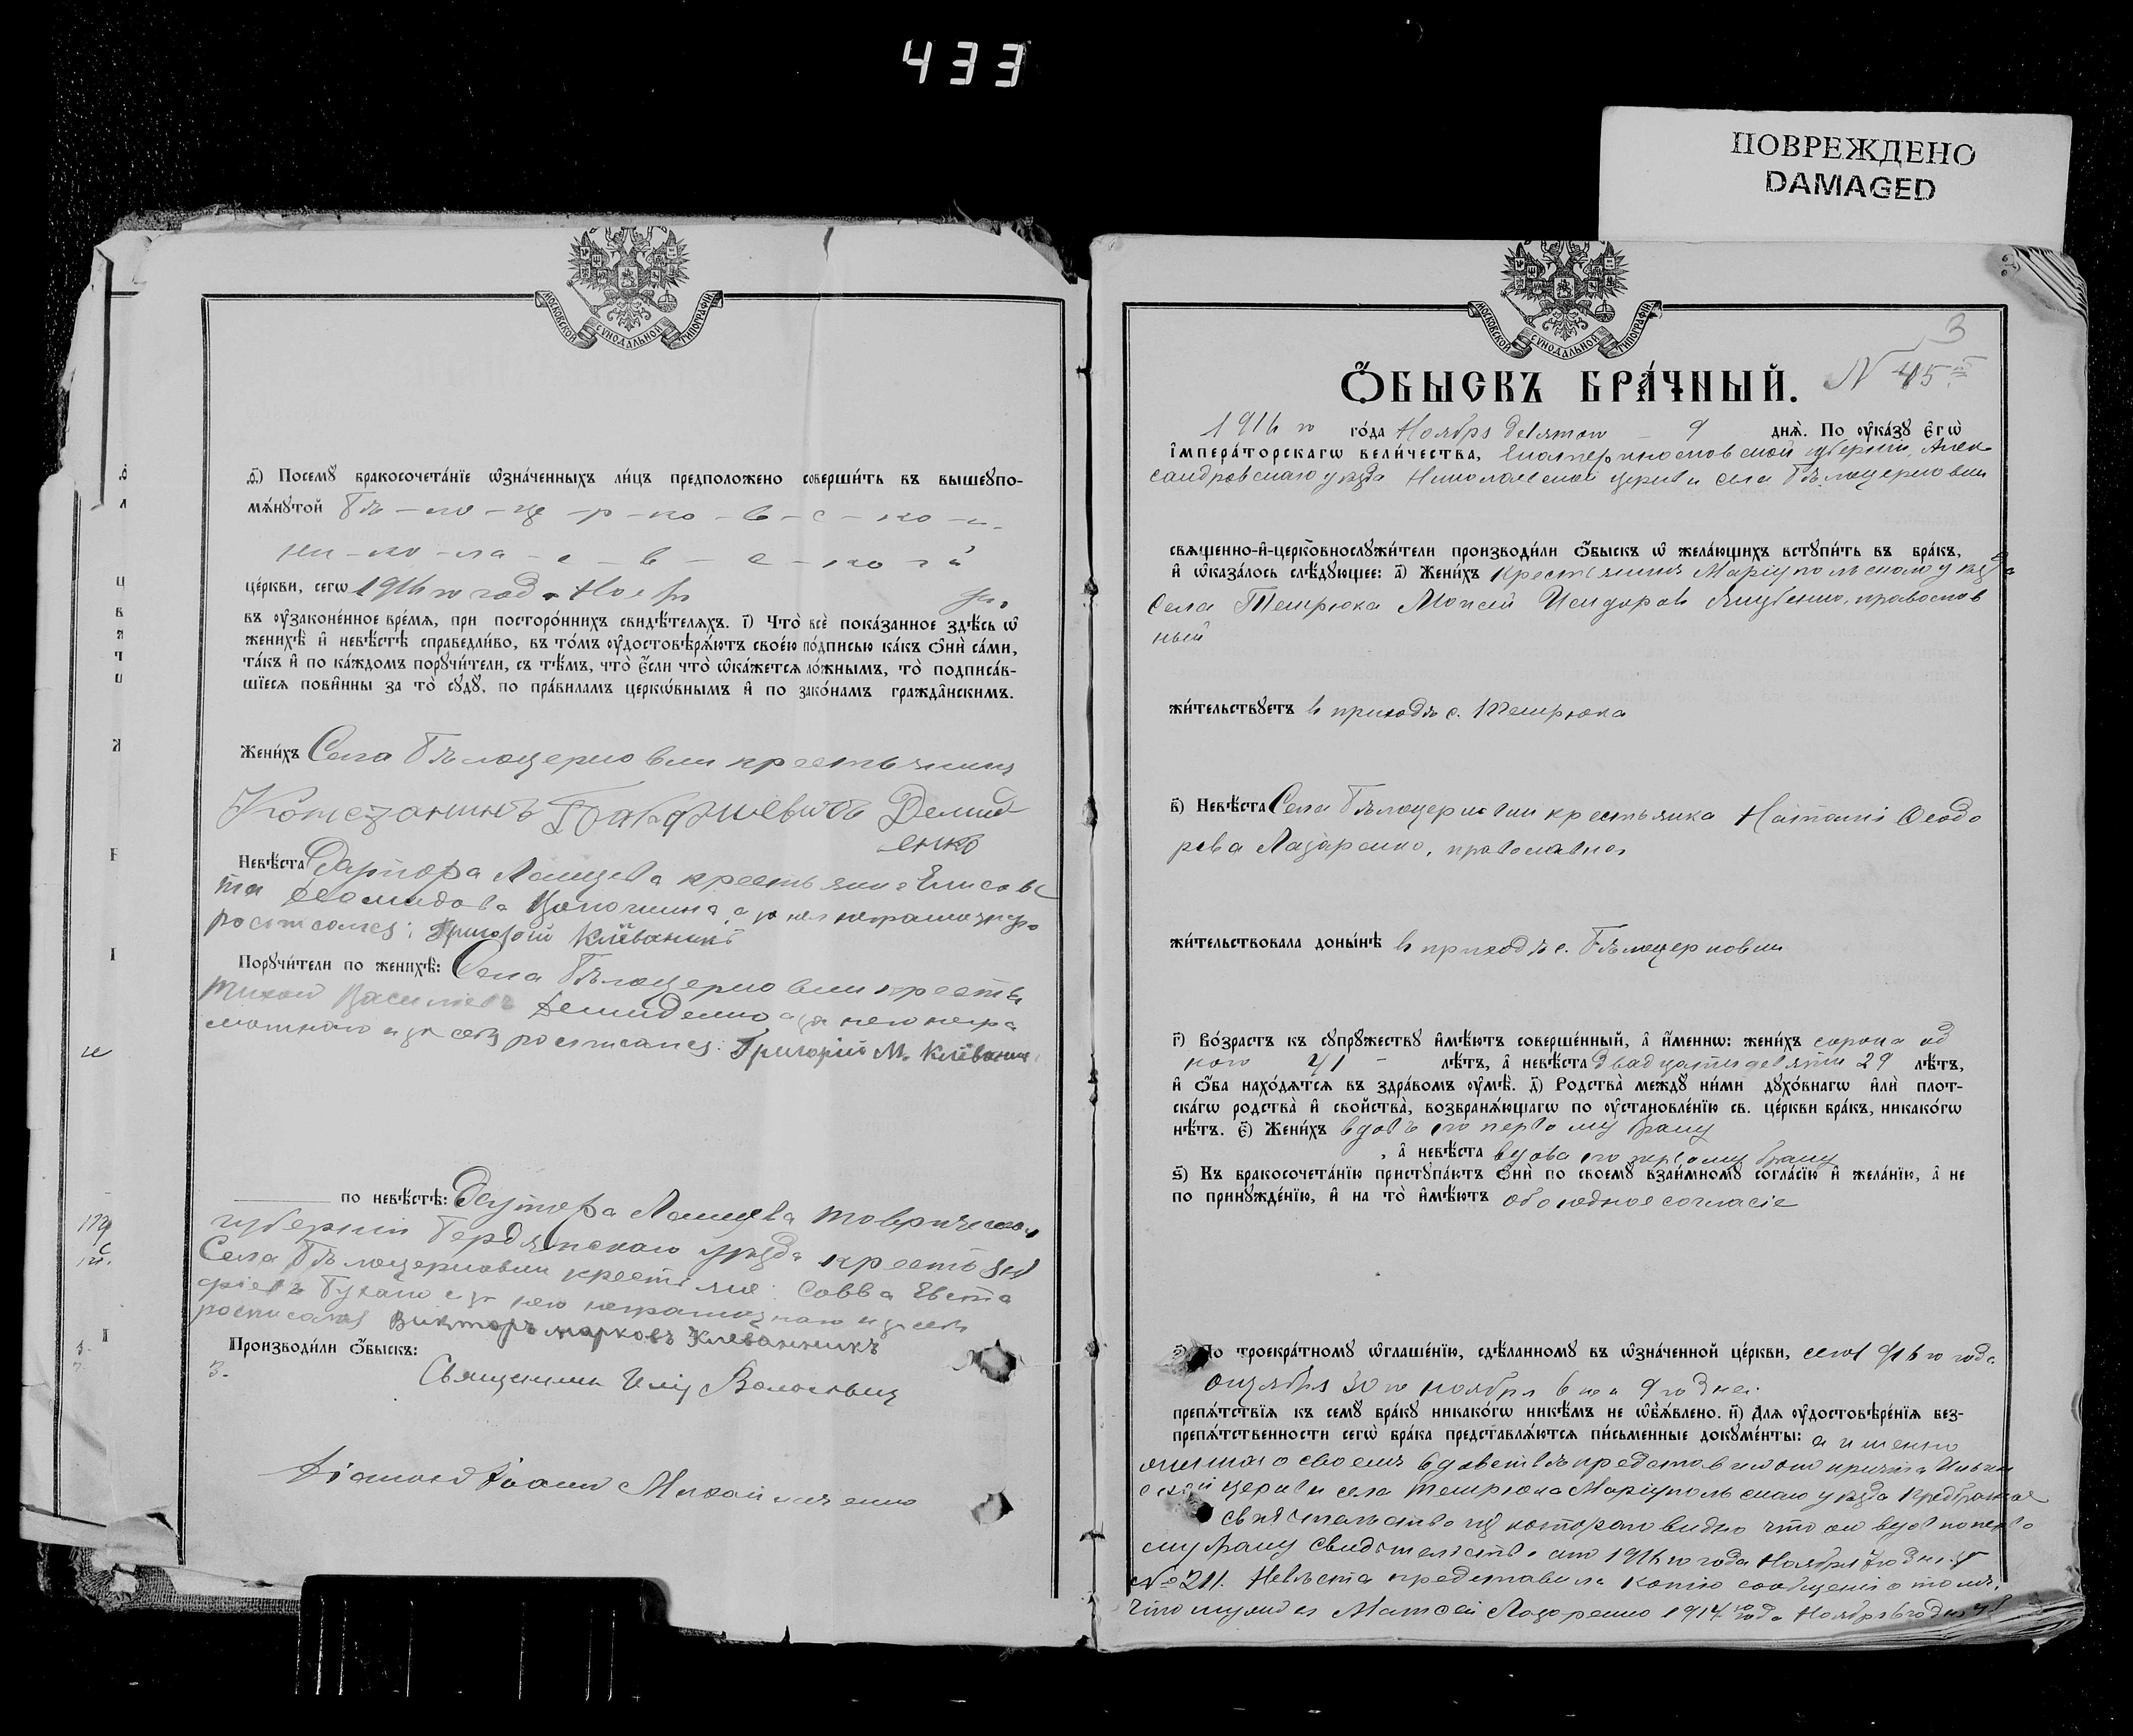 433
ПОВРЕЖДЕНО
DAMAGED
МОСКОВСКОЙ СѴНОДАЛЬНОЙ ТИПОГРАФІИ
д҃) Посемꙋ бракосочетáнїе ѡ҆знáченныхъ ли́цъ предположено соверши́ть въ вышеꙋпо-
мѧ́нꙋтой Бѣ-ло-це-р-ко-в-с-ко-й
ни-ко-ла-е-в-с-ко-й
цéркви, сегѡ 1916 го года Ноябр
въ ᲂу҆законéнное врéмѧ, при посторóннихъ свидѣ́телѧхъ. і҃) Чтò всѐ покáзанное здѣ́сь ѡ҆
женихѣ̀ и҆ невѣ́стѣ справедли́во, въ тóмъ ᲂу҆достовѣрѧ́ютъ своéю пóдписью кáкъ ѻ҆нѝ сáми,
тáкъ и҆ по кáждомъ порꙋчи́тели, съ тѣ́мъ, чтò є҆́сли чтò ѡ҆кáжетсѧ лóжнымъ, тò подписáв-
шїесѧ пови́нны за тò сꙋдꙋ̀, по прáвиламъ церкóвнымъ и҆ по закóнамъ граждáнскимъ.
Жени́хъ Села Бѣлоцерковки крестьянинъ
Демид
енко
Невѣ́ста крестьян Елисаве
та за нея неграмотную
росписался: Григорій Клёванникъ
Порꙋчи́тели по женихѣ̀: Села Бѣлоцерковки крестья
Тихон Васильевъ Демиденко а за него негра
мотнаго и за себя росписался: Григорій М. Клёванник
по невѣ́стѣ: Таврической
губерніи Бердянскаго уѣзда крестьян
Села Бѣлоцерковки крестьяне: Савва Евста
фіевъ а за него неграмотнаго и за себя
росписался Викторъ Марковъ Клеванникъ
Производи́ли ѻ҆́быскъ:
Священникъ
Діаконъ Іоаннъ Михайличенко
МОСКОВСКОЙ СѴНОДАЛЬНОЙ ТИПОГРАФІИ
3
Ѻ҆́БЫСКЪ БРА́ЧНЫЙ. N 45
1916 го гóда Ноября девятаго - 9 днѧ̀. По ᲂу҆кáзꙋ є҆гѡ̀
і҆мперáторскагѡ вели́чества, Екатеринославской губерніи, Алек-
сандровскаго уѣзда Николаевской церкви села Бѣлоцерковки
свѧще́нно-и҆-церкóвнослꙋжи́тели производи́ли ѻ҆́быскъ ѡ҆ желáющихъ встꙋпи́ть въ брáкъ,
и҆ ѡ҆казáлось слѣ́дꙋющее: а҃) Жени́хъ Крестьянинъ Маріупольскаго уѣзда
Села Темрюка Моисей Исидоровъ Якубенко, православ
ный
жи́тельствꙋетъ въ приходѣ с. Темрюка
в҃) Невѣ́ста Села Бѣлоцерковки крестьянка Наталія Ѳеодо
рова Лазаренко, православная
жи́тельствовала доны́нѣ въ приходѣ с. Бѣлоцерковки
г҃) Вóзрастъ къ сꙋпрꙋ́жествꙋ и҆мѣ́ютъ совершéнный, а҆ и҆́меннѡ: жени́хъ сорока од
ного 41 - лѣ́тъ, а҆ невѣ́ста двадцати девяти 29 лѣ́тъ,
и҆ ѻ҆́ба нахóдѧтсѧ въ здрáвомъ ᲂу҆мѣ̀. д҃) Родствà междꙋ̀ ни́ми дꙋхóвнагѡ и҆лѝ плот-
скáгѡ родствà и҆ свойствà, возбранѧ́ющагѡ по ᲂу҆становлéнїю св. цéркви брáкъ, никакóгѡ
нѣ́тъ. є҃) Жени́хъ вдовъ по первому браку
, а҆ невѣ́ста вдова по первому браку
ѕ҃) Къ бракосочетáнїю пристꙋпáютъ ѻ҆нѝ по своемꙋ̀ взаи́мномꙋ соглáсїю и҆ желáнїю, а҆ не
по принꙋждéнїю, и҆ на тò и҆мѣ́ютъ обоюдное согласіе
По троекрáтномꙋ ѡ҆глашéнїю, сдѣ́ланномꙋ въ ѡ҆знáченной цéркви, сего 1916 го года
октября 30 го ноября 6 го и 9 го дней.
препѧ́тствїѧ къ семꙋ̀ брáкꙋ никакóгѡ никѣ́мъ не ѡ҆б̾ѧ́влено. и҃) Длѧ ᲂу҆достовѣрéнїѧ без-
препѧ́тственности сегѡ̀ брáка представлѧ́ютсѧ пи́сьменные докꙋмéнты: а именно
женихъ о своемъ вдовствѣ представилъ отъ причта
церкви села Темрюка Маріупольскаго уѣзда
свидѣтельство изъ котораго видно что он вдов по перво
му браку свидѣтельство отъ 1916 го года Ноября 7 го дня за
№ 211. Невѣста представила копію сообщенія о томъ,
что мужъ ея Матѳей Лазаренко 1914 го года Ноября 6 го дня